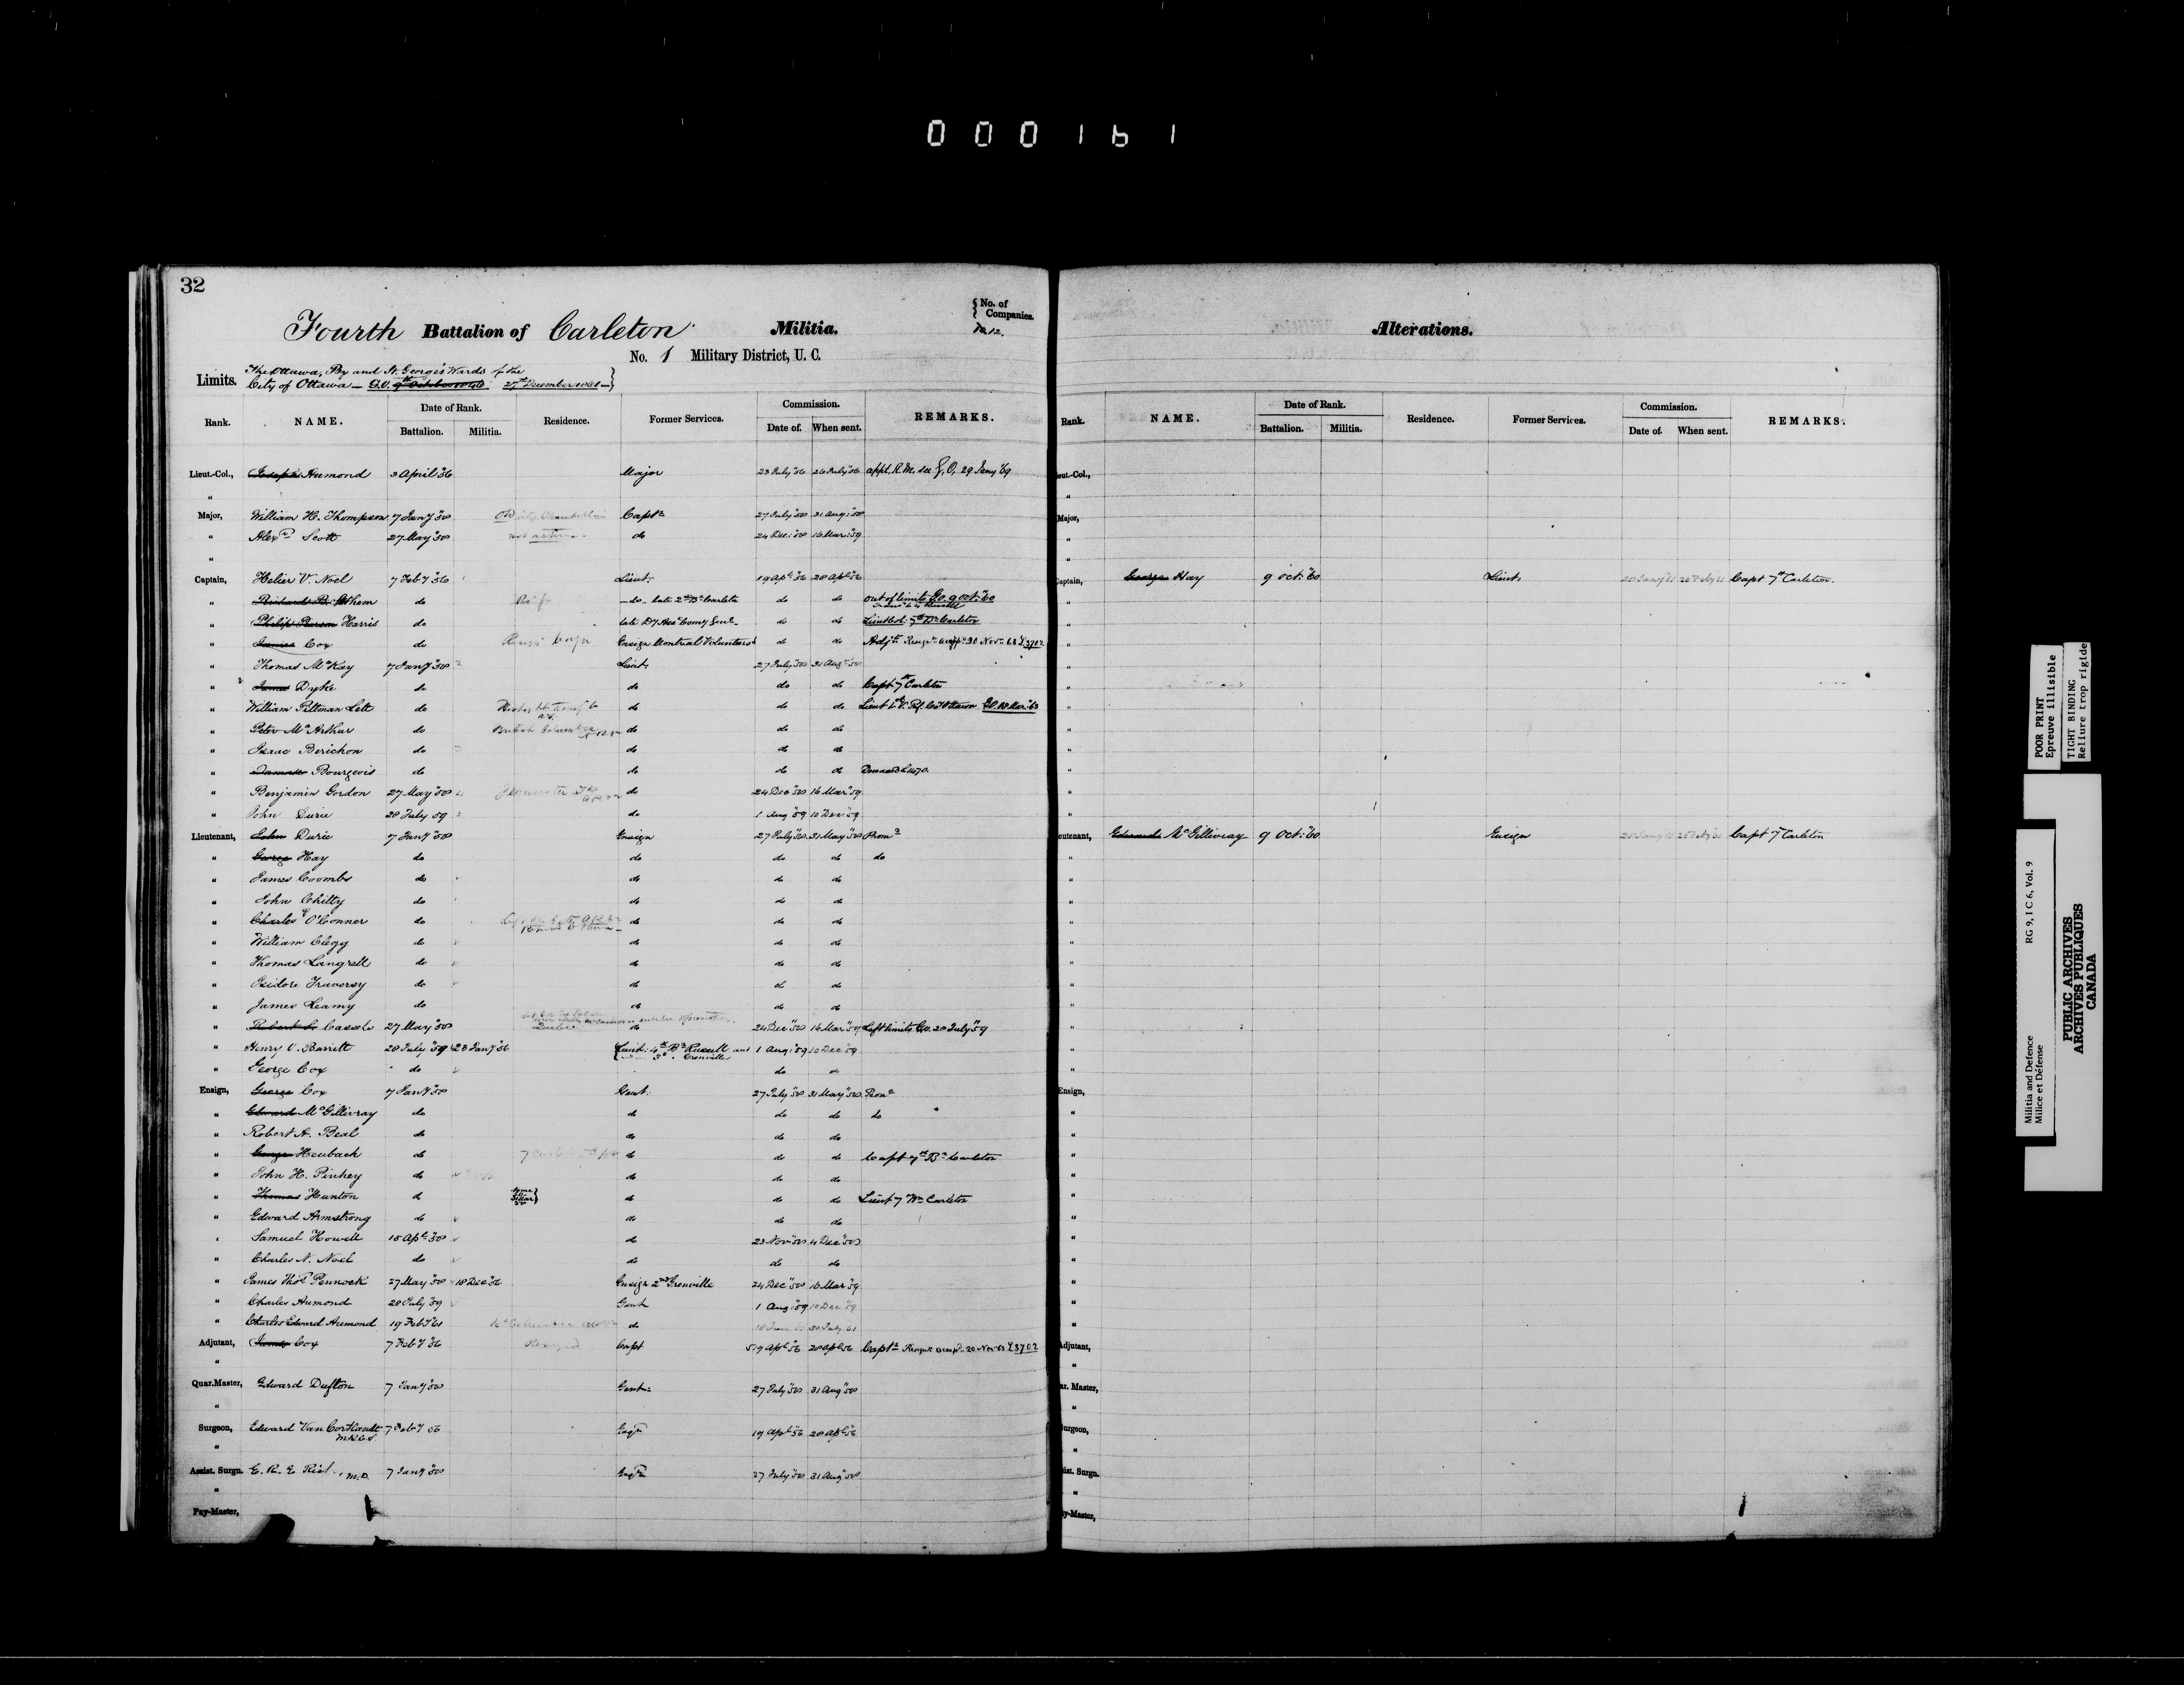 000161
32
Fourth Battalion of Carleton Militia.
{ No. of Companies.
12.
No. 1 Military District, U. C.
Limits. The Ottawa, By and St. George's Wards of the
City of Ottawa — G.O. 9th October 1860 27th December 1861 — }
Rank. NAME. Date of Rank. Battalion. Militia. Residence. Former Services. Commission. Date of. When sent. REMARKS.
Lieut.-Col., Joseph Aumond 3 April "56 Major 23 July "56 26 July "56 appt. R.M. see G.O. 29 Jany "69
"
Major, William H. Thompson 7 Jany "58 Old City Chamberlain Captn 27 July "58 31 Aug: "58
" Alexr Scott 27 May "58 not active do 24 Dec: "58 16 Mar: "59
"
Captain, Helier V. Noel 7 Feby "56 Lieut: 19 Apl "56 28 Apl "56
" Richard B. do do late 2nd Bn Carleton do do out of limits G.O. 9 Oct: "60
" Philip Pearson Harris do late Dy Assn Comy Genl do do Lieut Col. 7th Bn Carleton
" James Cox do Ensign Montreal Volunteers do do Adjt
" Thomas McKay 7 Jany "58 Lieut: 27 July "58 31 Aug "58
" James Dyke do do do do Capt 7th Carleton
" William Pittman Lett do do do do
" Peter McArthur do British Columbia do do do
" Isaac Berichon do do do do
" Damase Bourgeois do do do do Deceased
" Benjamin Gordon 27 May "58 Gloucester do 24 Dec "58 16 Mar "59
" John Durie 28 July 59 do 1 Aug "59 10 Dec "59
Lieutenant, John Durie 7 Jany "58 Ensign 27 July "58 31 May "58 Promd
" George Hay do do do do do
" James Coombs do do do do
" John Chitty do do do do
" Charles O'Conner do do do do
" William Clegg do do do do
" Thomas Langrell do do do do
" Isidore Traversy do do do do
" James Leamy do do do do
" Robert S. Cassels 27 May "58 Quebec do 24 Dec "58 16 Mar "59 Left limits G.O. 28 July "59
" Henry V. 28 July "59 28 Jany "56 { Lieut: 4th Bn Russell and 3d Grenville 1 Aug: "59 10 Dec "59
" George Cox do do do
Ensign, George Cox 7 Jany "58 Gent: 27 July "58 31 May "58 Promd
" Edward McGillivray do do do do do
" Robert A. Beal do do do do
" George Heubach do do do do Capt 7th Bn Carleton
" John H. Pinhey do do do do
" Thomas Hunton do do do do Lieut 7 Bn Carleton
" Edward Armstrong do do do do
" Samuel Howell 15 Apl "58 do 23 Nov "58 4 Dec "58
" Charles N. Noel do do do do
" James Thos Pennock 27 May "58 18 Dec "56 Ensign 2nd Grenville 24 Dec "58 16 Mar "59
" Charles Aumond 28 July "59 Gent 1 Aug: "59 10 Dec "59
" Charles Edward Aumond 19 Feby "61 do 20 July 61
Adjutant, James Cox 7 Feby "56 Resigned Capt 19 Apl "56 28 Apl 56 Captn
"
Quar. Master, Edward Dufton 7 Jany "58 Gent: 27 July "58 31 Aug "58
"
Surgeon, Edward Van Cortlandt 7 Feby 56 Esqr 19 Apl "56 28 Apl "56
M.R.C.S.
"
Assist. Surgn. E. R. E. M.D. 7 Jany "58 Esqr 27 July "58 31 Aug "58
"
Pay-Master,
Alterations.
Rank. NAME. Date of Rank. Battalion. Militia. Residence. Former Services. Commission. Date of. When sent. REMARKS.
eut.-Col.,
"
Major,
"
"
Captain, George Hay 9 Oct: "60 Lieut: Capt 7th Carleton.
eutenant, Edward McGillivray 9 Oct: "60 Ensign Capt 7 Carleton
Ensign,
Adjutant,
"
ar. Master,
"
urgeon,
"
ist. Surgn.
"
y-Master,
POOR PRINT
Epreuve illisible
TIGHT BINDING
Reliure trop rigide
Militia and Defence
Milice et Défense
RG 9, I C 6, Vol. 9
PUBLIC ARCHIVES
ARCHIVES PUBLIQUES
CANADA